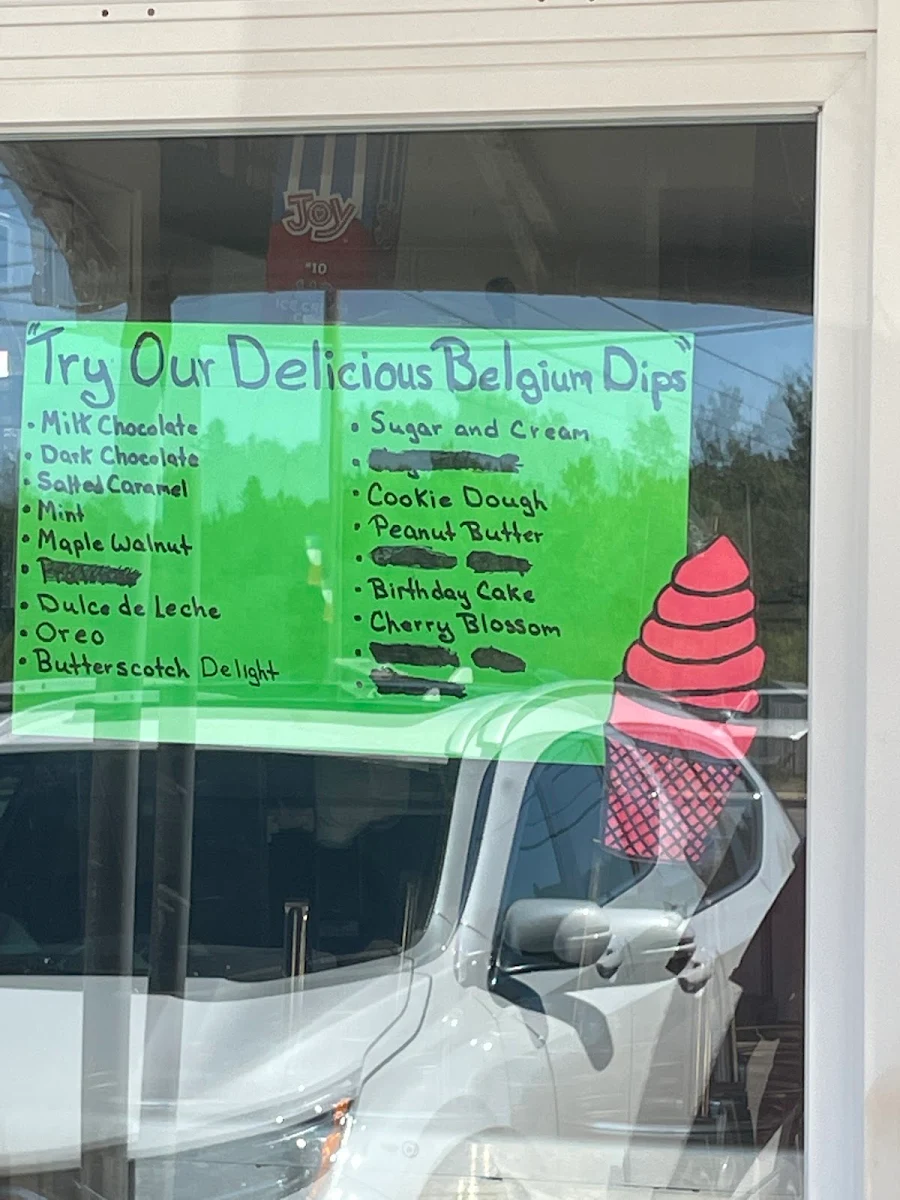 JOY
#10
"Try Our Delicious Belgium Dips"
• Milk Chocolate
• Dark Chocolate
• Salted Caramel
• Mint
• Maple Walnut
•
• Dulce de Leche
• Oreo
• Butterscotch Delight
• Sugar and Cream
•
• Cookie Dough
• Peanut Butter
•
• Birthday Cake
• Cherry Blossom
•
•